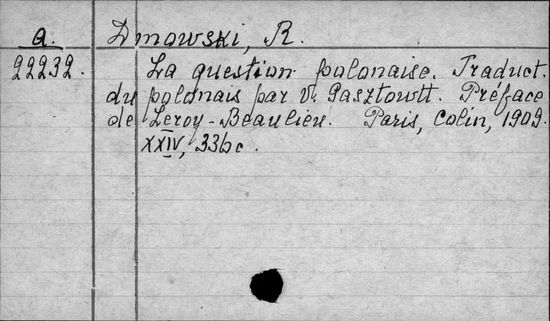 a. Dmowski, R.
22232. La question polonaise. Traduct.
du polonais par V. Gasztowtt. Préface
de Leroy-Beaulieu. Paris, Colin, 1909.
XXIV, 336 c.